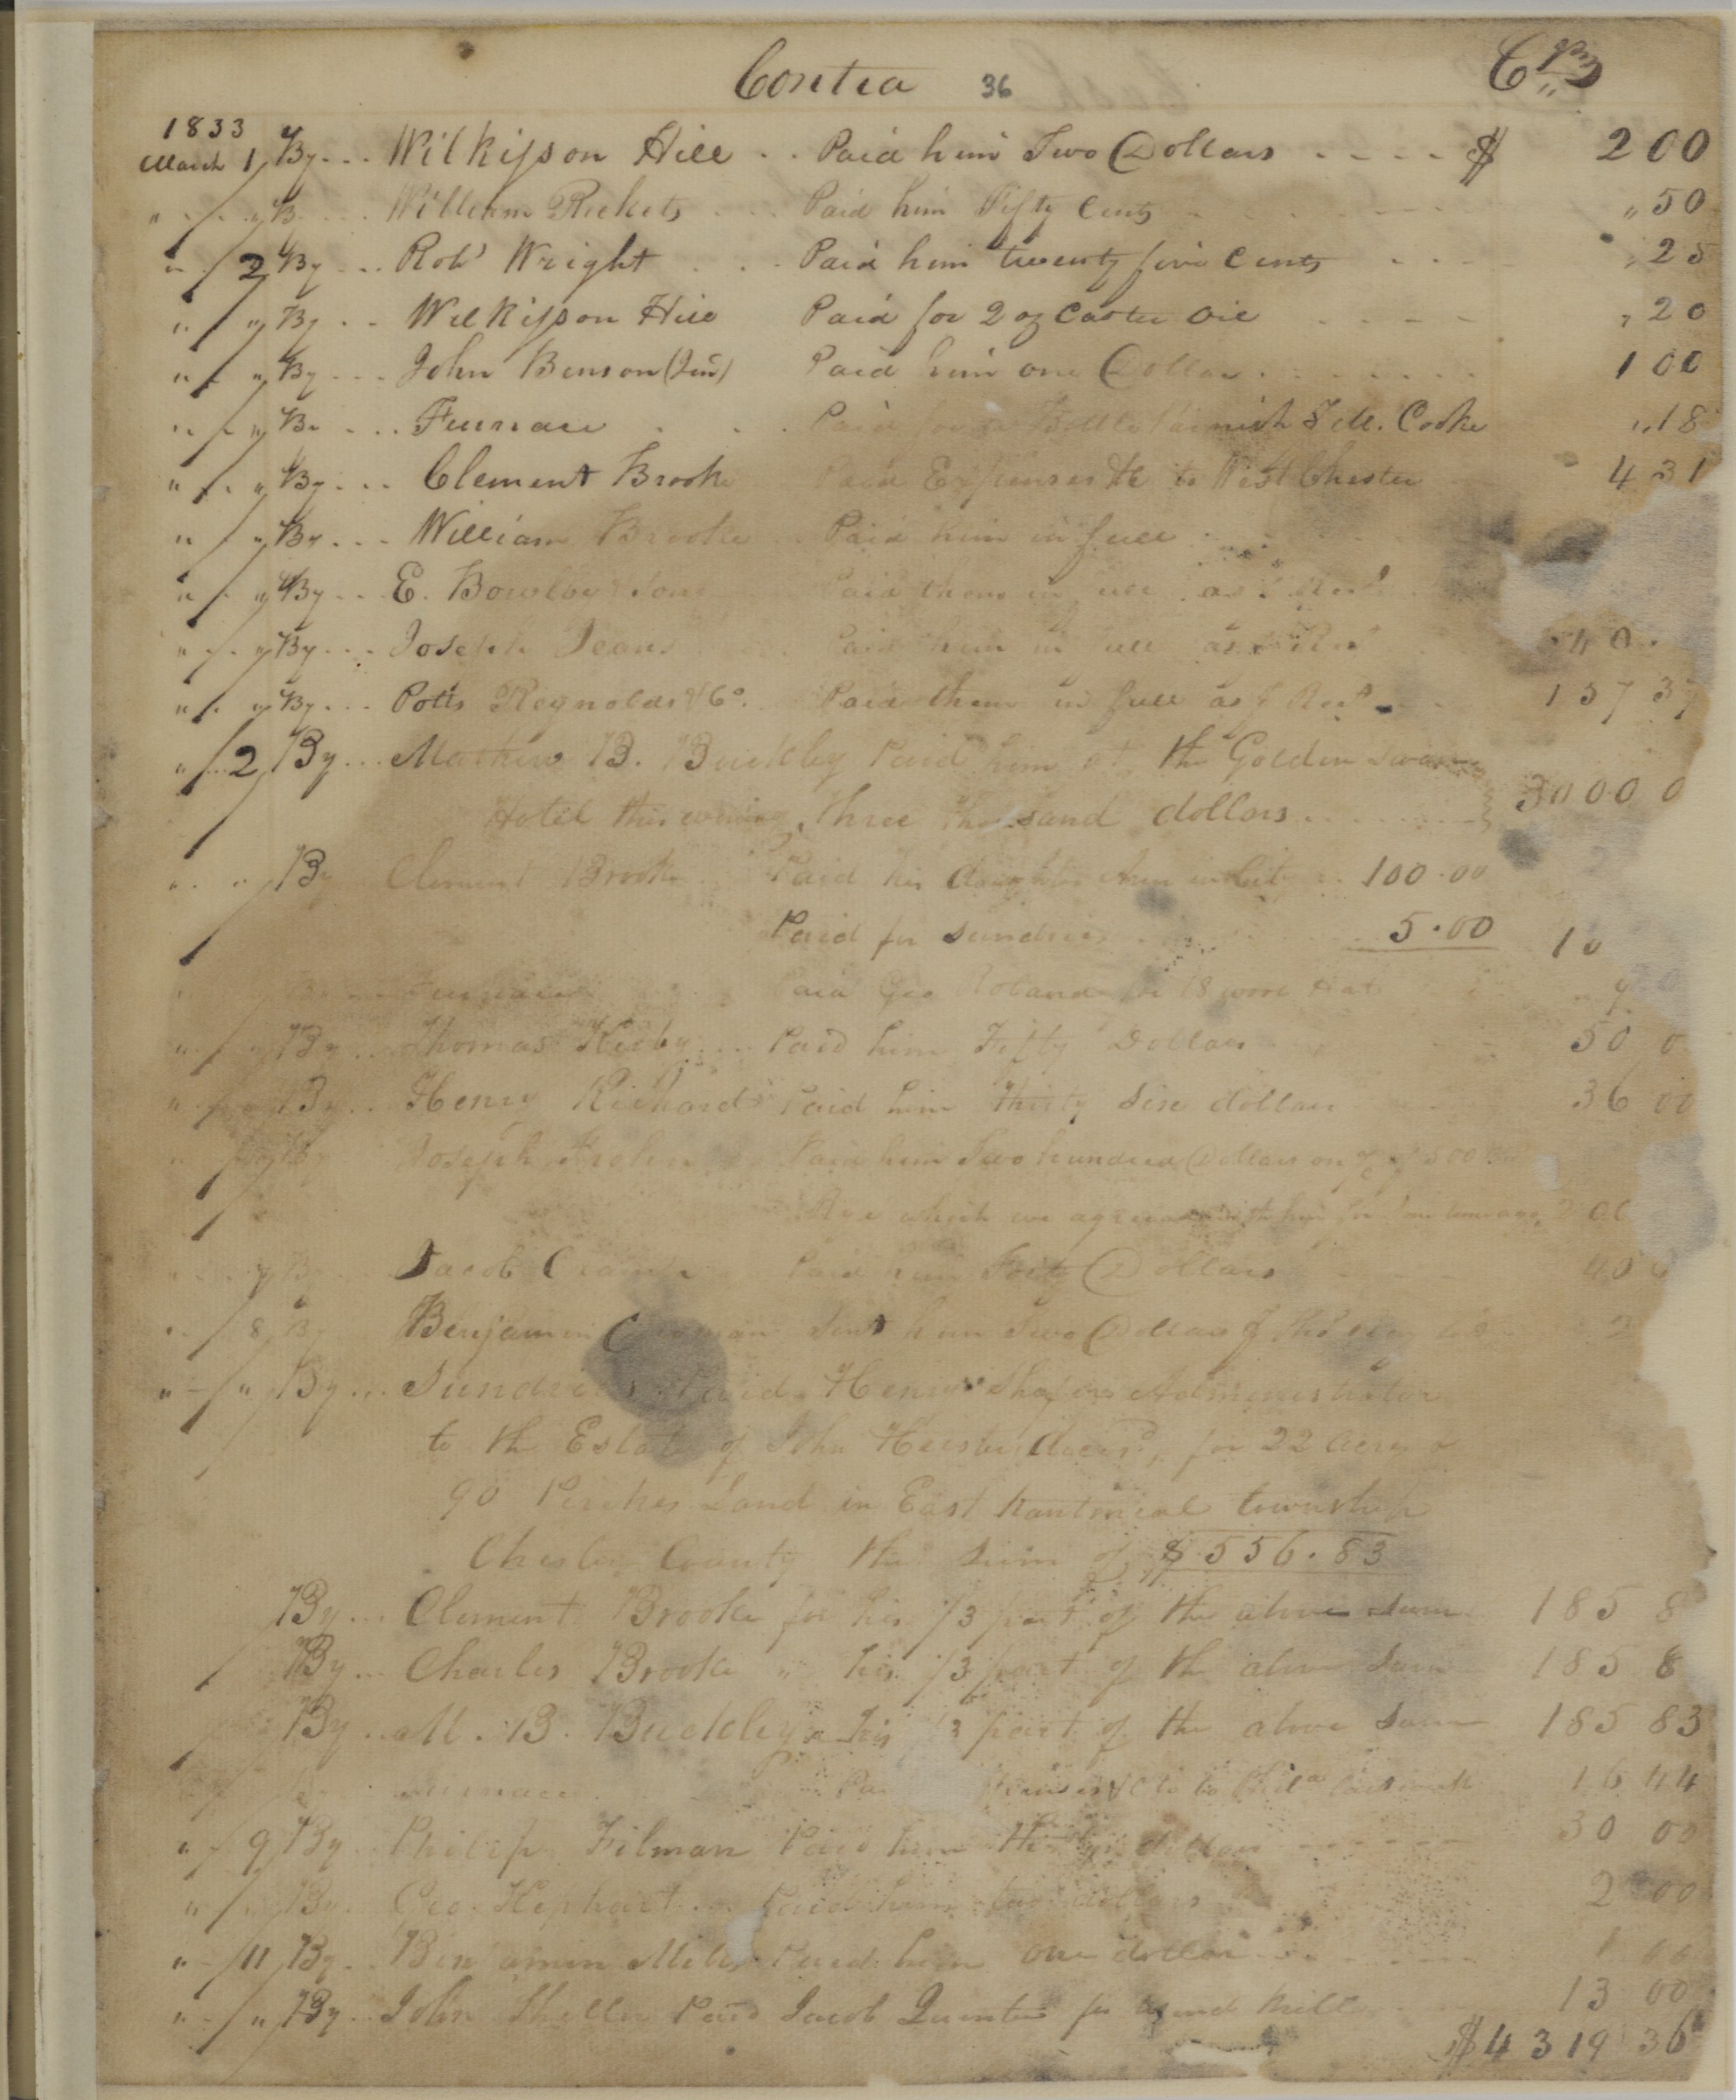 Contra 36 Crs
1833
March 1 By... Wilkisson Hill .. Paid him Two Dollars .... $ 2 00
" " By ... William Rickets ... Paid him Fifty Cents " 50
" 2 By ... Robt Wright ... Paid him twenty five Cents .... " 25
" " By .. Wilkisson Hill Paid for 2 oz Caster Oil .... " 20
" " By ... John Benson (Junr) Paid him one Dollar ....... 1 00
" " By ... Furnace ... Paid for a Bottle Cooke " 18
" " By ... Clement Brooke Paid Expenses &c to West Chester 4 31
" " By ... William Brooke .. Paid him in full
" " By ... E. Bowlby & Sons Paid them in full as
" " By ... Joseph Jeans Paid him in full as 40
" " By ... Potts Reynolds & Co. Paid them in full as Rect 157 37
" 2 By ... Mathew B. Buckley Paid him at the Golden Swan
Hotel this evening, three thousand dollars ....... 3000 0
" " By Clement Brooke Paid his daughter 100.00
Paid for Sundries 5.00 10
" " By Furnace Paid Geo Roland for 18
" " By ... Thomas Kirby ... Paid him Fifty Dollars 50 0
" " By ... Henry Richards Paid him thirty six dollars 36 00
" " By Joseph Paid him Two hundred Dollars on 500
Rye which we agreed with him for some time ago 200
" " By Jacob Paid him Forty Dollars 40 0
" 8 By Benjamin Sent him Two Dollars 2
" " By ... Sundries Paid Henry Administrator
to the Estate of John Heister deceasd, for 22 Acres &
90 Perches Land in East Nantmeal township
Chester County the sum of $556.83
By ... Clement Brooke for his 1/3 part of the above sum 185 8
By ... Charles Brooke " his 1/3 part of the above sum 185 8
By .. M. B. Buckley " his 1/3 part of the above sum 185 83
Furnace 16 44
" 9 By Philip Filman Paid him Thirty dollars ------ 30 00
" " By Geo. Hephart .. Paid him two dollars 2 00
" 11 By .. Benjamin Miles Paid him one dollar ...... 1 00
" " By .. John Paid Jacob for 13 00
$4319 36